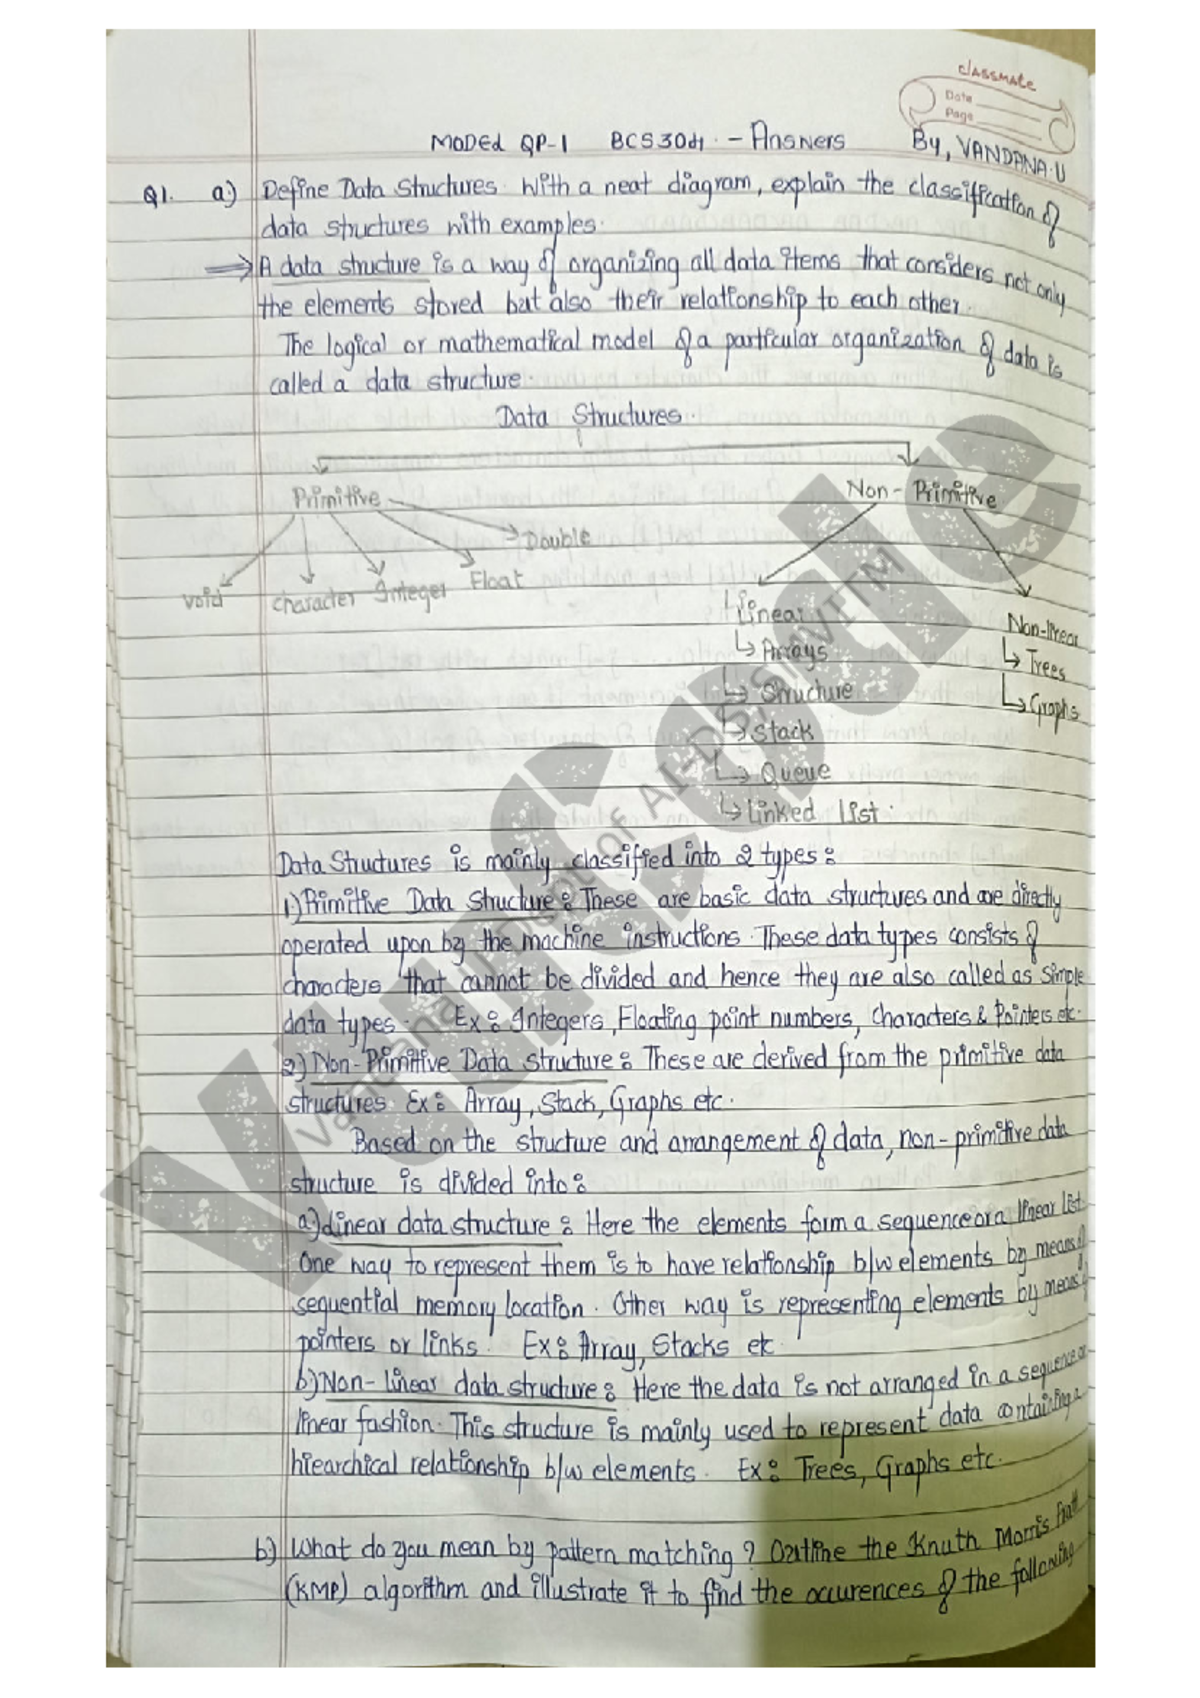 classmate
Date
Page
MODEL QP-1 BCS304 - Answers By, VANDANA.U
Q1. a) Define Data Structures. With a neat diagram, explain the classification of
data structures with examples.
⇒ A data structure is a way of organizing all data items that considers not only
the elements stored but also their relationship to each other.
The logical or mathematical model of a particular organization of data is
called a data structure.
Data Structures.
Primitive Non-Primitive
Double
void character Integer Float
Linear Non-linear
↳ Arrays ↳ Trees
↳ Structure ↳ Graphs
↳ Stack
↳ Queue
↳ Linked list.
Data Structures is mainly classified into 2 types:
1) Primitive Data Structure: These are basic data structures and are directly
operated upon by the machine instructions. These data types consists of
characters that cannot be divided and hence they are also called as simple
data types. Ex: Integers, Floating point numbers, characters & Pointers etc.
2) Non-Primitive Data structure: These are derived from the primitive data
structures. Ex: Array, Stack, Graphs etc.
Based on the structure and arrangement of data, non-primitive data
structure is divided into:
a) Linear data structure: Here the elements form a sequence or a linear list.
One way to represent them is to have relationship b/w elements by means of
sequential memory location. Other way is representing elements by means of
pointers or links. Ex: Array, Stacks etc.
b) Non-linear data structure: Here the data is not arranged in a sequence or
linear fashion. This structure is mainly used to represent data containing a
hiearchical relationship b/w elements. Ex: Trees, Graphs etc.
b) What do you mean by pattern matching? Outline the Knuth Morris Pratt
(KMP) algorithm and illustrate it to find the occurences of the following
VTUCode
Vandana U, Dept of AI-DS, SMVITM